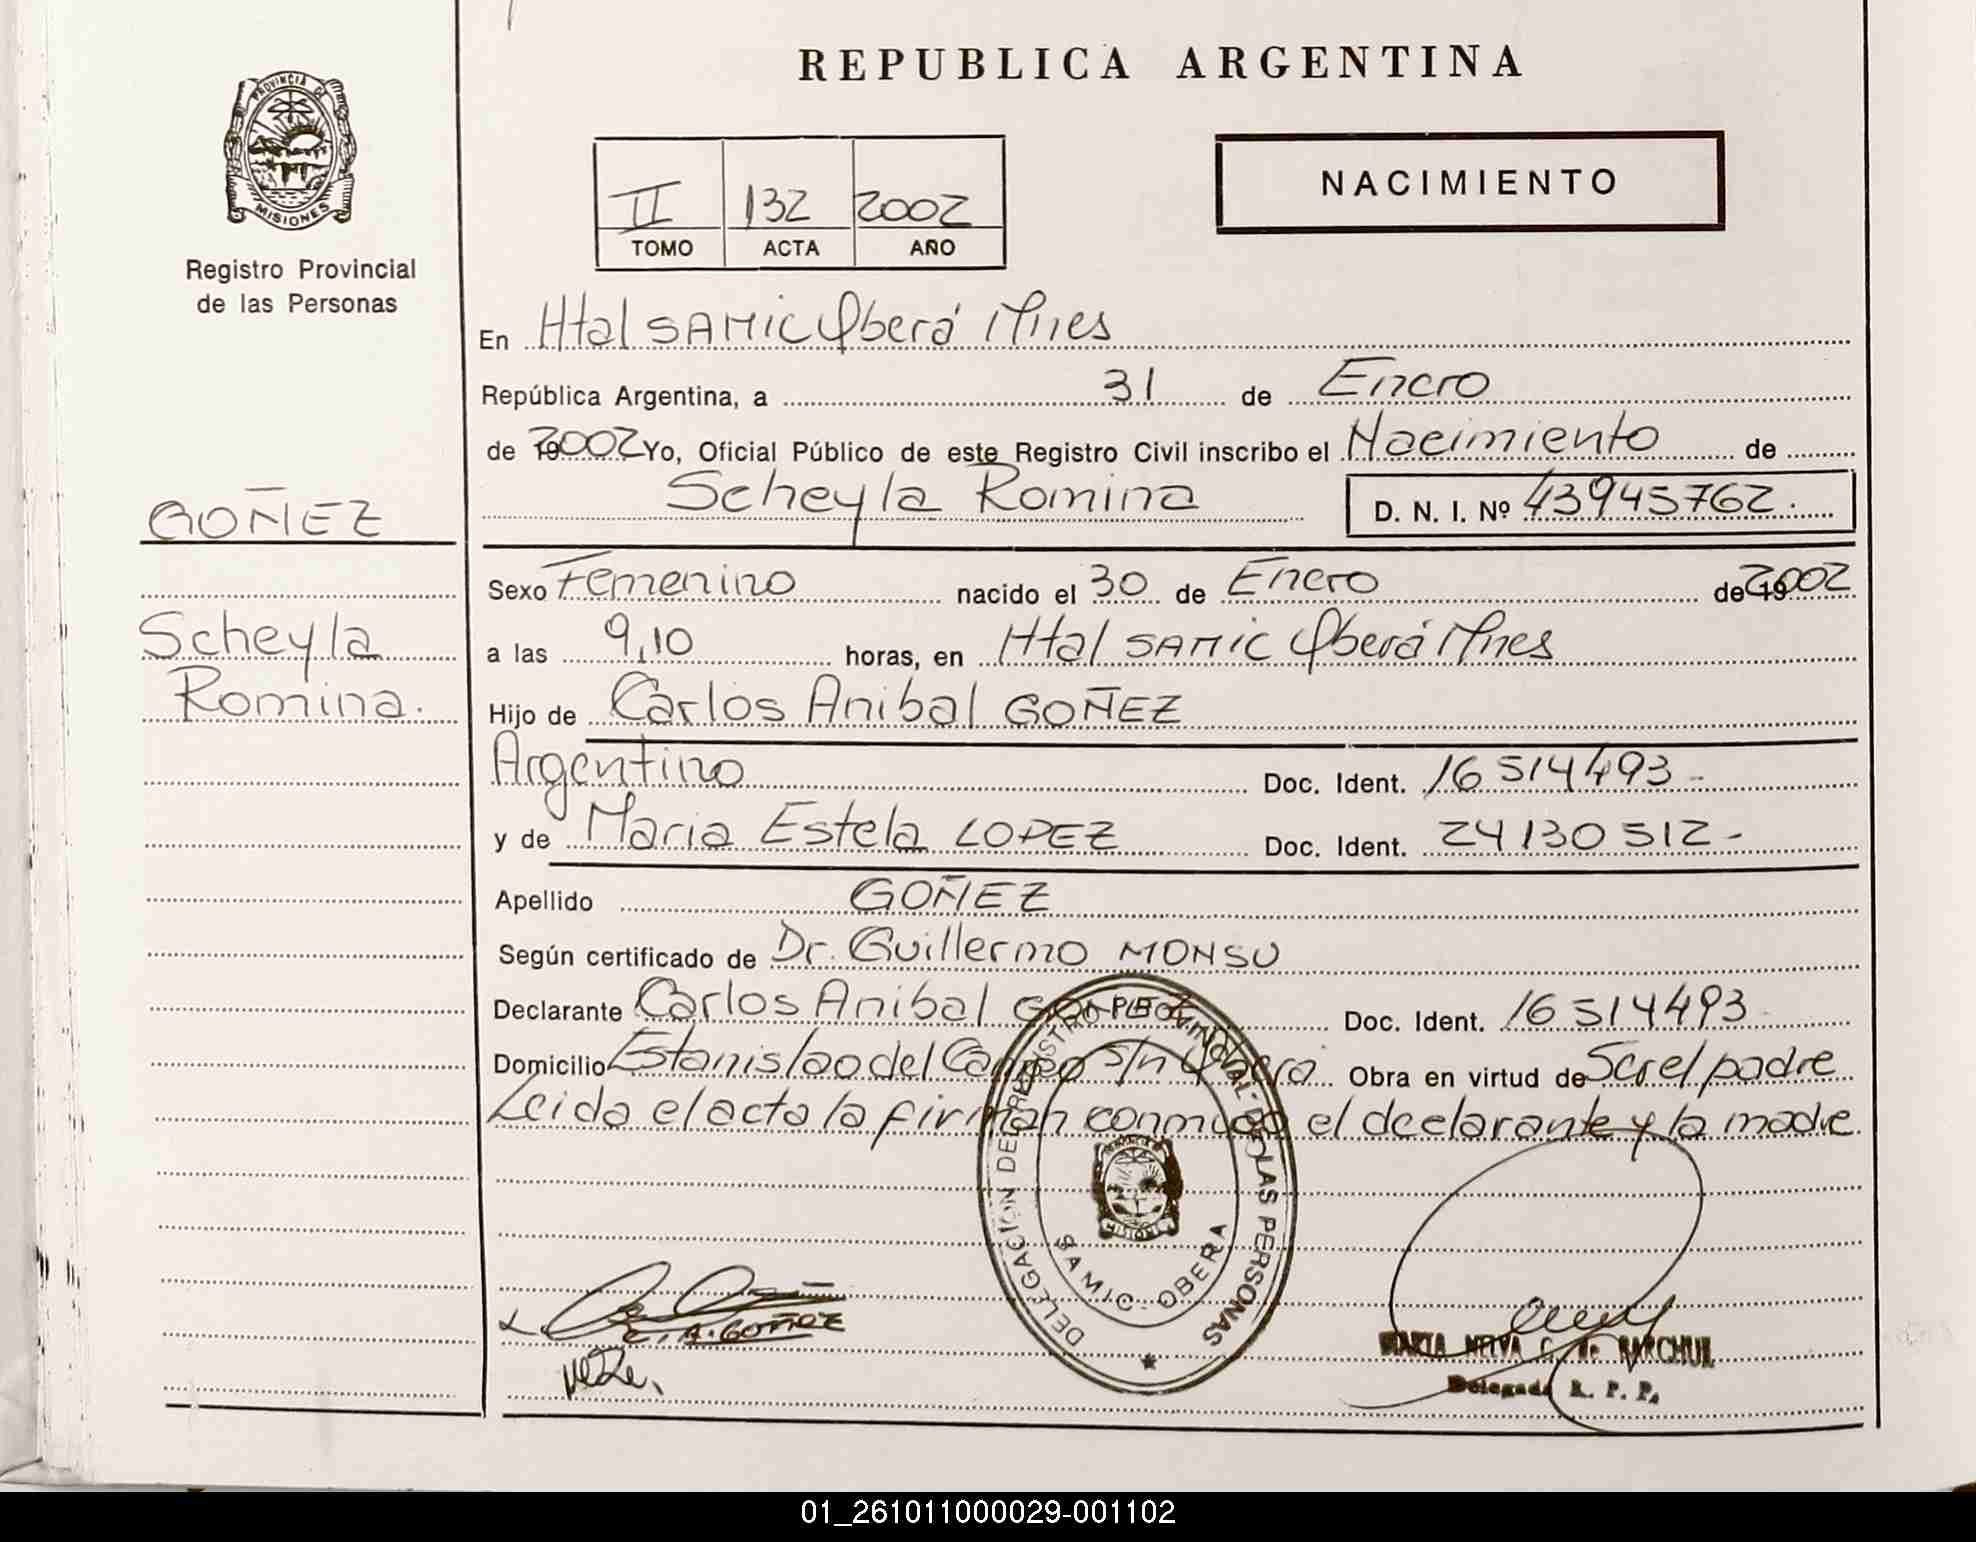 REPUBLICA ARGENTINA
PROVINCIA DE
MISIONES
Registro Provincial
de las Personas
II 132 2002
TOMO ACTA AÑO
NACIMIENTO
En Htal SAMIC Oberá Mnes
República Argentina, a 31 de Enero
de 2002 Yo, Oficial Público de este Registro Civil inscribo el Nacimiento de
Scheyla Romina D. N. I. Nº 43945762.
GOÑEZ
Scheyla
Romina.
Sexo Femenino nacido el 30 de Enero de 19 2002
a las 9,10 horas, en Htal SAMIC Oberá Mnes
Hijo de Carlos Anibal GOÑEZ
Argentino Doc. Ident. 16514493-
y de Maria Estela LOPEZ Doc. Ident. 24130512-
Apellido GOÑEZ
Según certificado de Dr. Guillermo MONSU
Declarante Carlos Anibal GOÑEZ Doc. Ident. 16514493
Domicilio Estanislao del Campo s/n Oberá Obra en virtud de Ser el padre
Leida el acta la firman conmigo el declarante y la madre.
DELEGACION DEL REGISTRO PROVINCIAL DE LAS PERSONAS
SAMIC - OBERA
C. A. GOÑEZ
MARIA NELVA C. de BARCHUK
Delegada R. P. P.
01_261011000029-001102